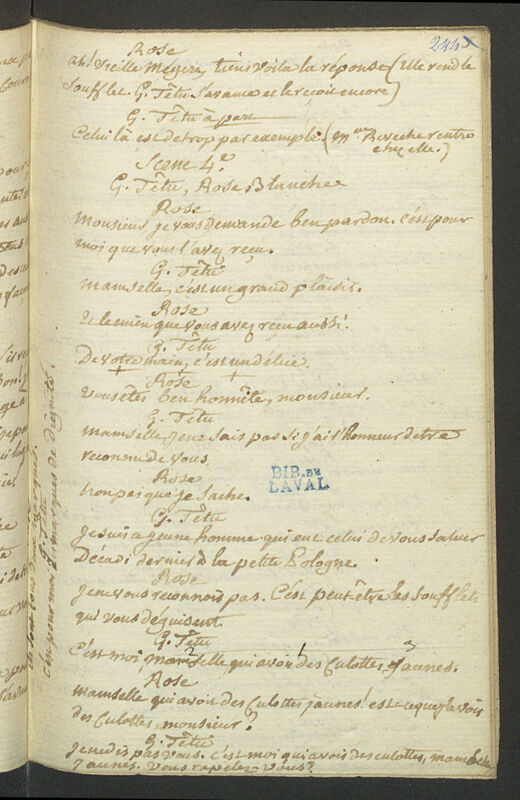 244
Rose
ah! Vieille Megere, tiens voila la réponse (Elle rend le
soufflet. G. Têtu s'avance et le reçoit encore)
G. Têtu à part
Celui là est de trop par exemple. (Mme Reveche rentre
chez elle.)
Scene 4.e
G. Têtu, Rose, Blanche
Rose
Monsieur, je vous demande ben pardon. c'est pour
moi que vous l'avez reçu.
G. Têtu
mamselle, c'est un grand plaisir.
Rose
Et le mien que vous avez reçu aussi!
G. Têtu
De votre main, c'est un délice.
Rose
Vous êtes ben honnête, monsieur.
G. Têtu
mamselle, je ne sais pas si j'ai l'honneur detre
reconnu de vous
Rose
non pas que je sache.
G. Têtu
Je suis ce jeune homme qui eut celui de vous saluer
Décadi dernier à la petite Pologne.
Rose
Je ne vous reconnois pas. C'est peut-être les soufflets
qui vous déguisent.
G. Têtu
C'est moi mamselle qui avois des Culottes jaunes.
Rose
mamselle qui avois des Culottes jaunes! est-ce que j'avois
des Culottes, monsieur?
G. Têtu
Je ne dis pas vous. c'est moi qui avois des culottes, mamselle
jaunes. vous rapelez-vous?
BIB. DE
LAVAL
G. Têtu
C'en pour moi des marques de dignité.